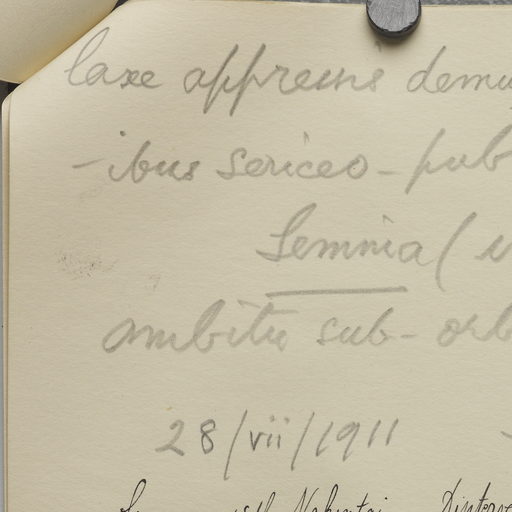 laxe appressis demu
-ibus sericeo-pub
Semina (
ambitu sub-orb
28/vii/1911